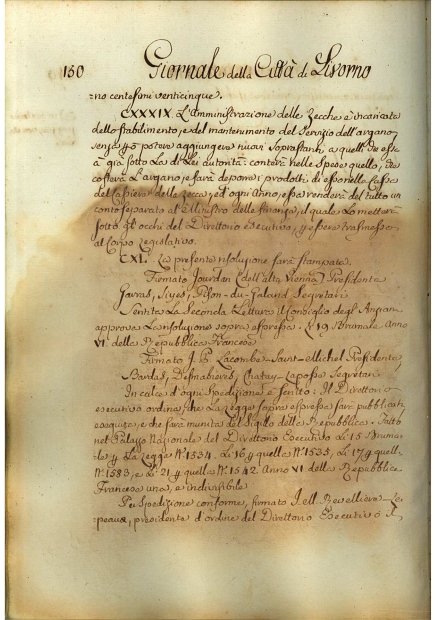 130 Giornale della Città di Livorno
no centesimi venticinque.
CXXXIX. L'Amministrazione delle Zecche è incaricata
dello stabilimento, e del mantenimento del Servizio dell'argano,
senza potere aggiungere nuovi Soprastanti a quelli che essa
à già sotto la di lei autorità: conterà nelle Spese quello, che
costerà L'argano, e farà depor i prodotti di esso nella Cassa
del Cassiere della Zecca, ed ogni Anno, essa renderà del tutto un
conto separato al Ministro delle finanze, il quale Lo metterà
sotto gli occhi del Direttorio esecutivo, essere trasmesso
al Corpo Legislativo.
CXL. La presente risoluzione sarà stampata.
Firmato Jourdan (dell'alta Vienna) Presidente
Gauras, Siyes, Pison-du-Galand Segretari
Sentita La Seconda Lettura il Consiglio degl'Anziani
approva La risoluzione sopra espressa. 19 Brumale Anno
VI della Repubblica Francese
Firmato J. P. Lacombe-Saint-Michel Presidente,
Bordas, Desmazieres, Chatry-Laposse Segretari
In calce d'ogni Spedizione è Scritto: Il Direttorio
esecutivo ordina, che La Legge sopra espressa sarà pubblicata
eseguita, e che sarà munita del Sigillo della Repubblica. Fatto
nel Palazzo Nazionale del Direttorio Esecutivo Li 15 Bruma-
le La Legge N.° 1534. Li 16 quella N.° 1535, Li 17 quell.
N.° 1583, e Li 21 quella N.° 1542. Anno VI della Repubblica
Francese una, e indivisibile
Per Spedizione conforme, firmato J. ell. Revelliere-Le-
peaux, presidente d'ordine del Direttorio Esecutivo